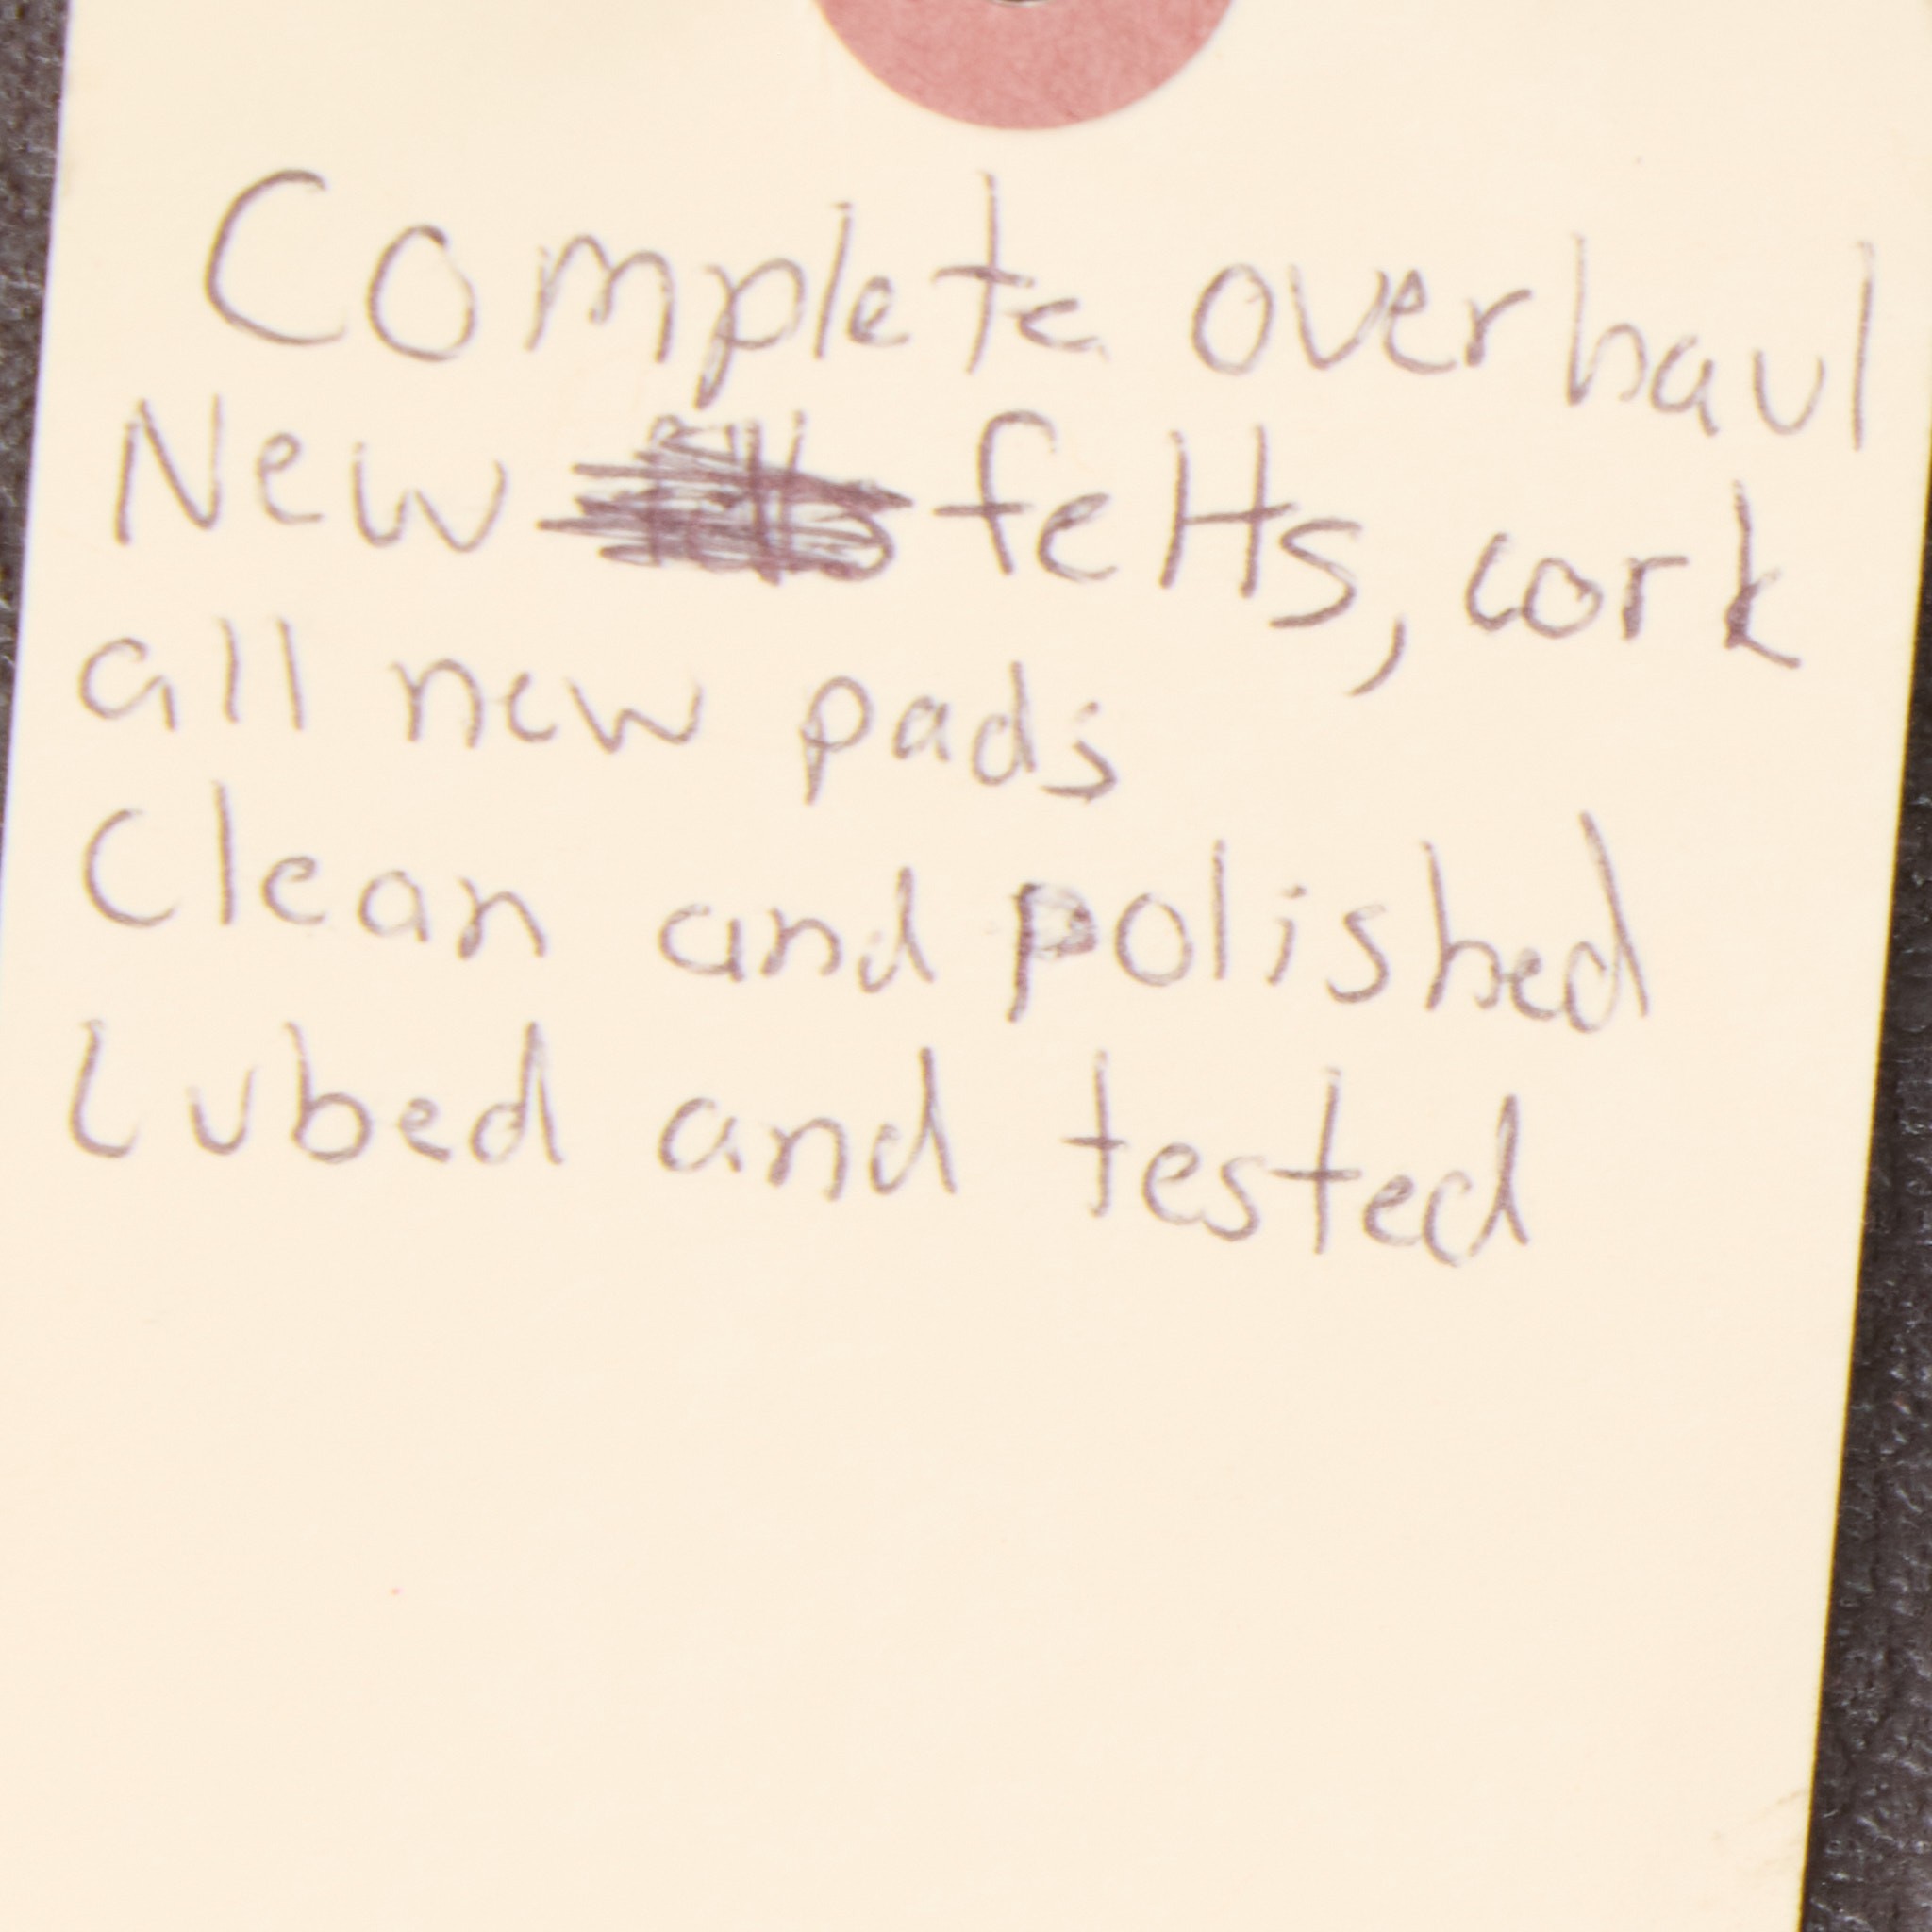 Complete overhaul
New felts, cork
all new pads
Clean and polished
Lubed and tested